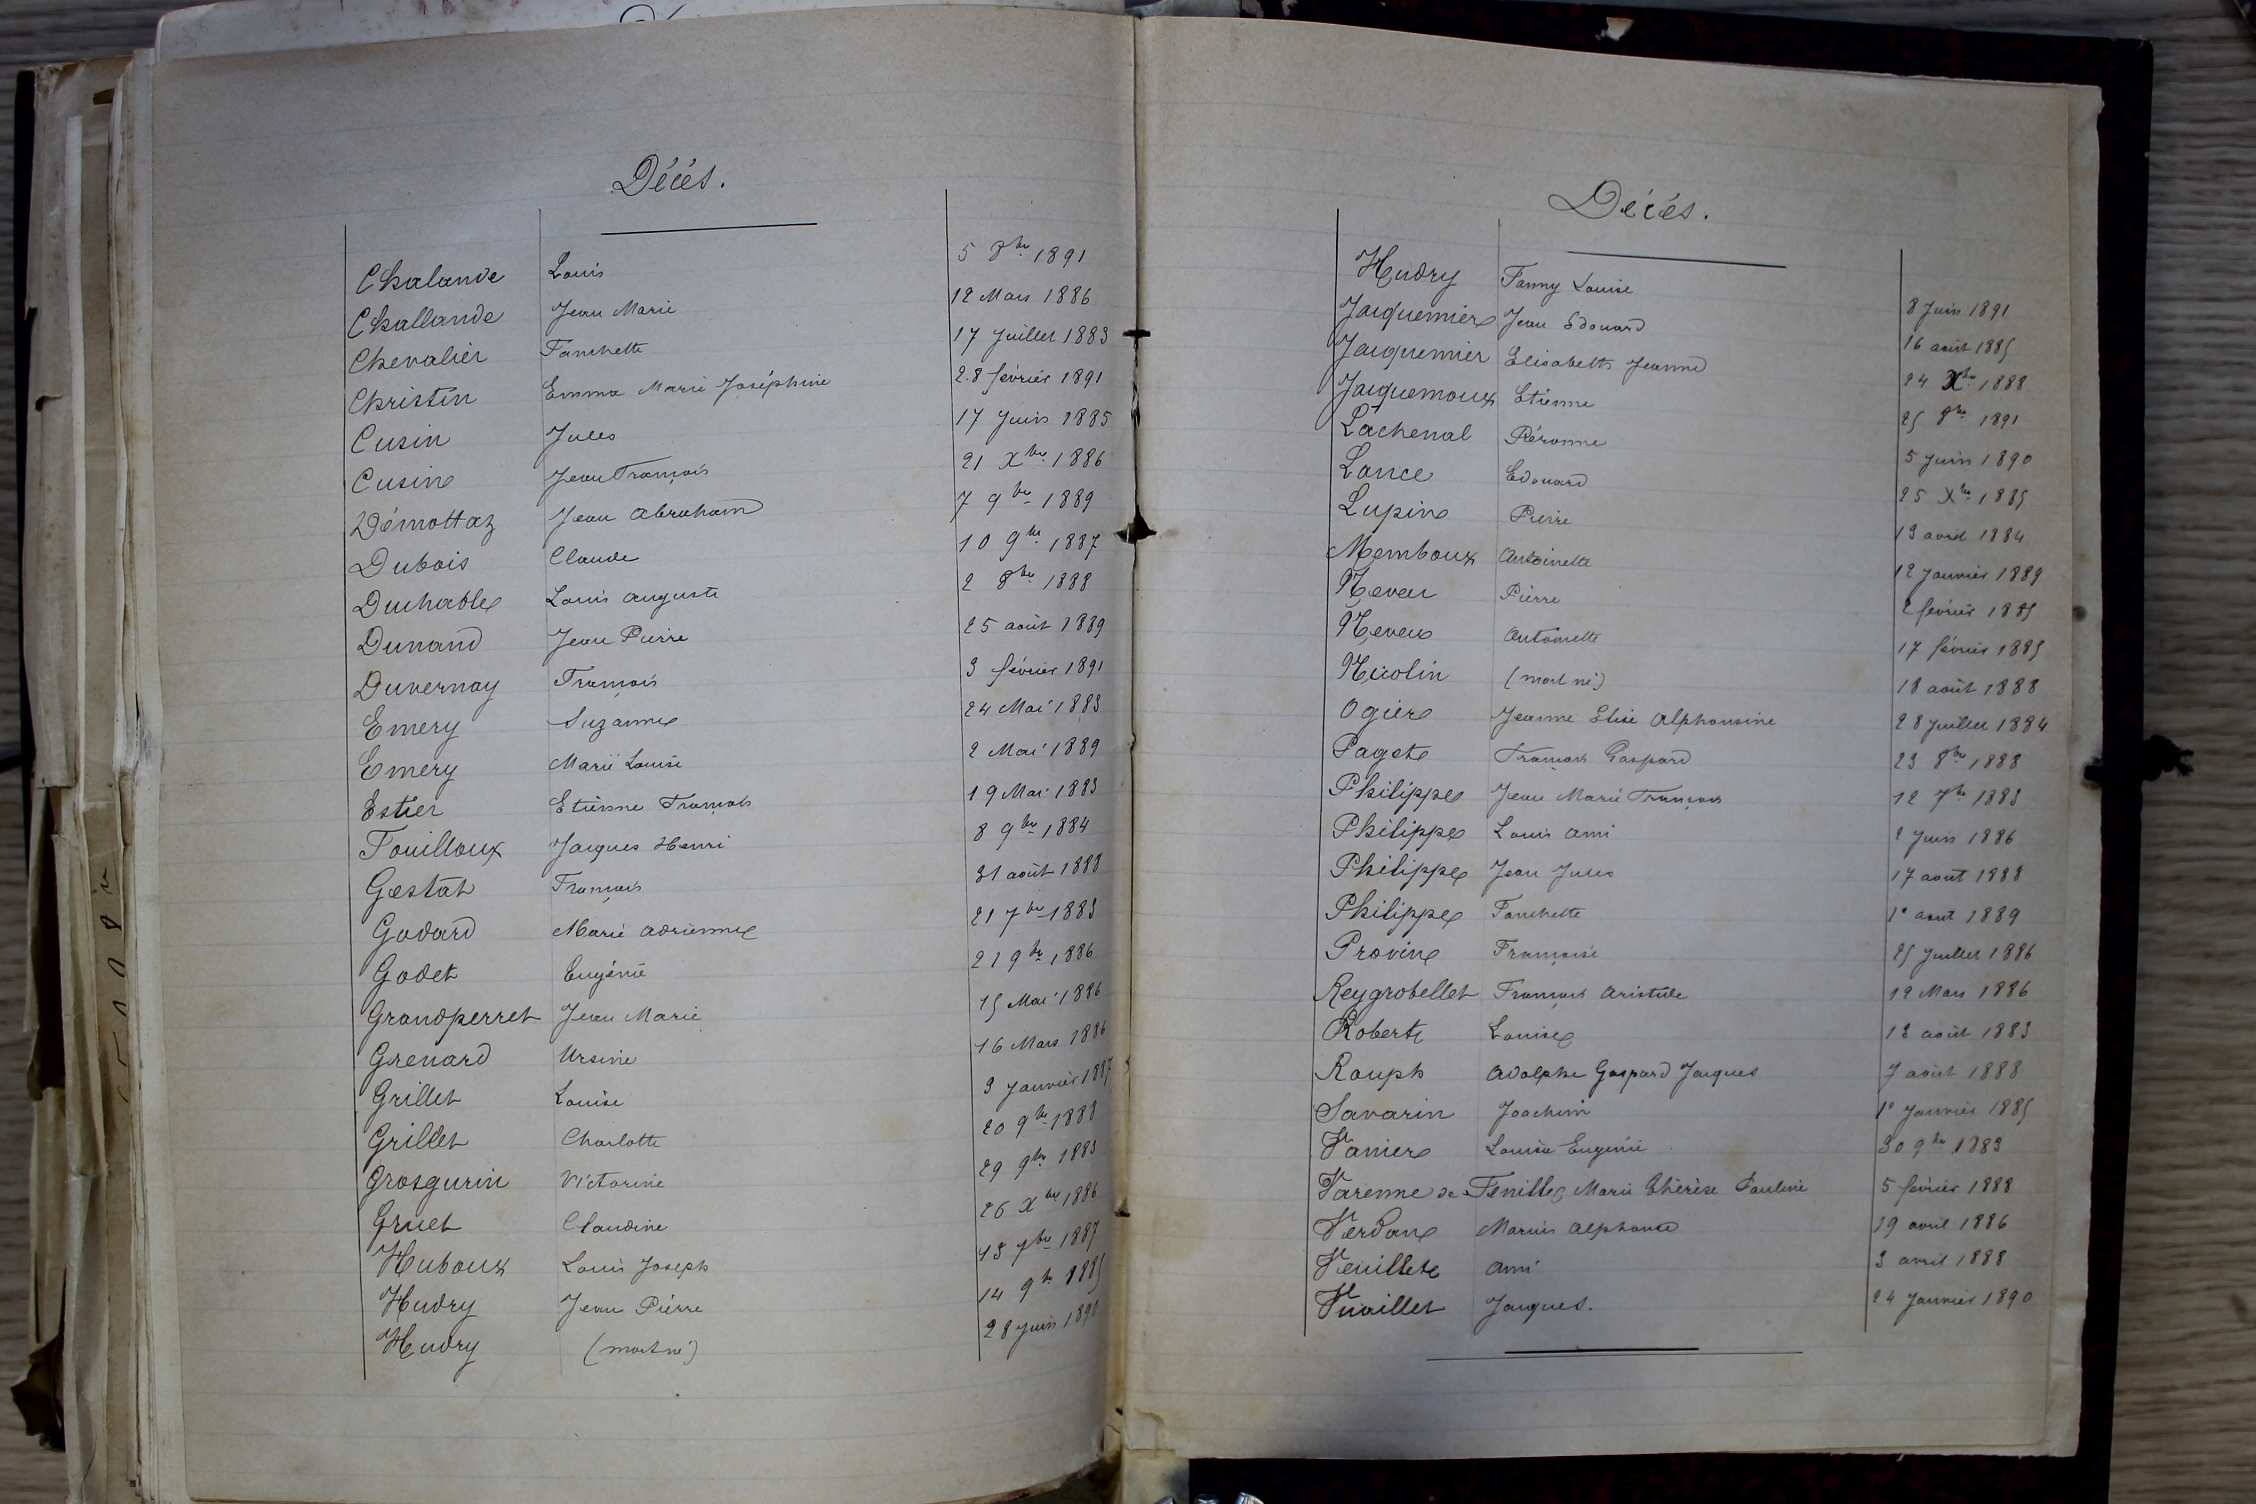 Décés.
Chalande Louis 5 8bre 1891
Challande Jean Marie 12 Mars 1886
Chevalier Fanchette 17 Juillet 1883
Christin Emma Marie Joséphine 28 février 1891
Cusin Jules 17 Juin 1885
Cusin Jean François 21 Xbre 1886
Démottaz Jean Abraham 7 9bre 1889
Dubois Claude 10 9bre 1887
Duchable Louis Auguste 2 8bre 1888
Dunand Jean Pierre 25 août 1889
Duvernay François 3 février 1891
Emery Suzanne 24 Mai 1883
Emery Marie Louise 2 Mai 1889
Estier Etienne François 19 Mai 1883
Fouilloux Jacques Henri 8 9bre 1884
Gastat François 31 août 1888
Godard Marie Adrienne 21 7bre 1883
Godet Eugénie 21 9bre 1886
Grandperret Jean Marie 15 Mai 1886
Grenard Ursine 16 Mars 1886
Grillet Louise 3 Janvier 1887
Grillet Charlotte 20 9bre 1888
Grosgurin Victorine 29 9bre 1883
Gruet Claudine 26 Xbre 1886
Huboux Louis Joseph 13 7bre 1887
Hudry Jean Pierre 14 9bre 1885
Hudry (mort né) 28 Juin
Décés.
Hudry Fanny Louise 8 Juin 1891
Jacquemier Jean Edouard 16 août 1885
Jacquemier Elisabeth Jeanne 24 Xbre 1888
Jacquemoux Etienne 25 8bre 1891
Lachenal Péronne 5 Juin 1890
Lance Edouard 25 Xbre 1885
Lupin Pierre 13 avril 1884
Memboux Antoinette 12 Janvier 1889
Neveu Pierre 2 février 1885
Neveu Antoinette 17 février 1885
Nicolin (mort né) 18 août 1888
Ogier Jeanne Elise Alphonsine 28 Juillet 1884
Paget François Gaspard 23 8bre 1888
Philippe Jean Marie François 12 7bre 1883
Philippe Louis Ami 2 Juin 1886
Philippe Jean Jules 17 août 1888
Philippe Fanchette 1er août 1889
Provin Françoise 25 Juillet 1886
Reygrobellet François Aristide 12 Mars 1886
Robert Louise 12 août 1883
Rouph Adolphe Gaspard Jacques 7 août 1888
Savarin Joachim 1er Janvier 1885
Vanier Louise Eugénie 30 9bre 1883
Varenne de Fenille Marie Thérèse Pauline 5 février 1888
Verdan Marius Alphonse 19 avril 1886
Veuillet Ami 3 avril 1888
Vuaillet Jacques. 24 Janvier 1890